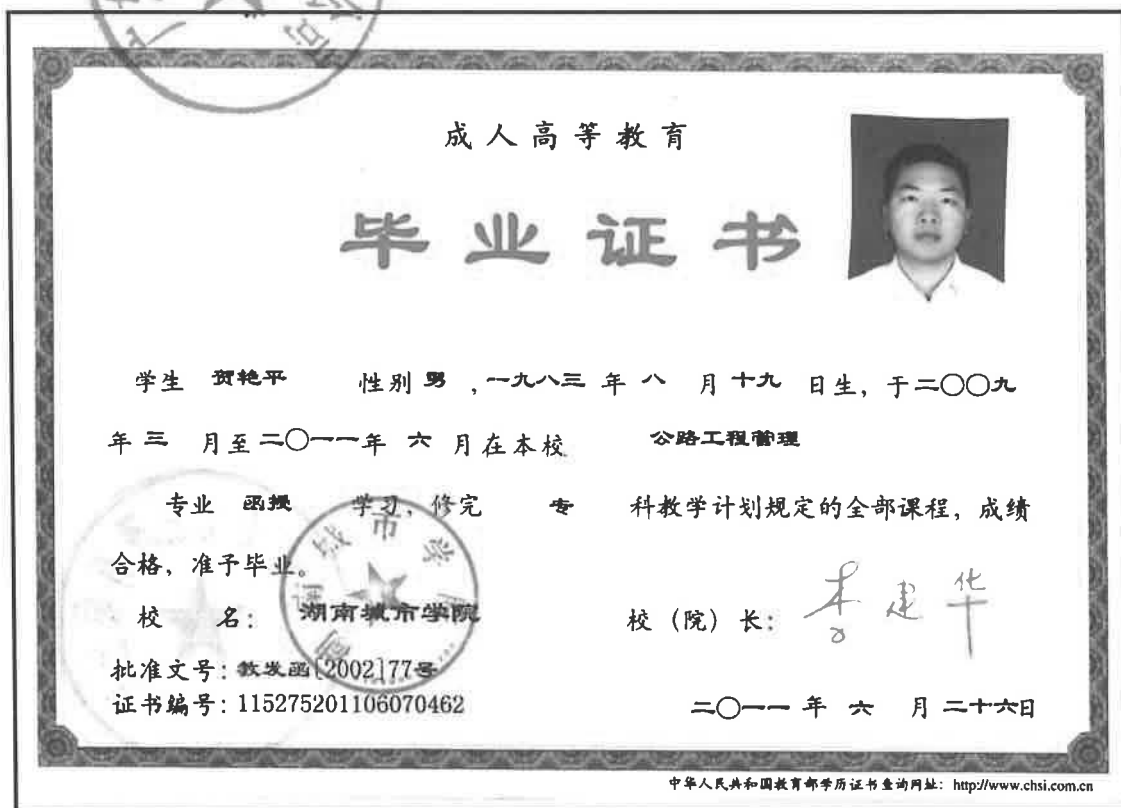 成人高等教育
毕业证书
学生 贺艳平 性别 男 ，一九八三 年 八 月 十九 日生，于二〇〇九
年 三 月至二〇一一年 六 月在本校 公路工程管理
专业 函授 学习，修完 专 科教学计划规定的全部课程，成绩
合格，准予毕业。
校 名： 湖南城市学院
校（院）长： 李建华
批准文号：教发函[2002]77号
证书编号：115275201106070462
二〇一一 年 六 月 二十六日
中华人民共和国教育部学历证书查询网址：http://www.chsi.com.cn